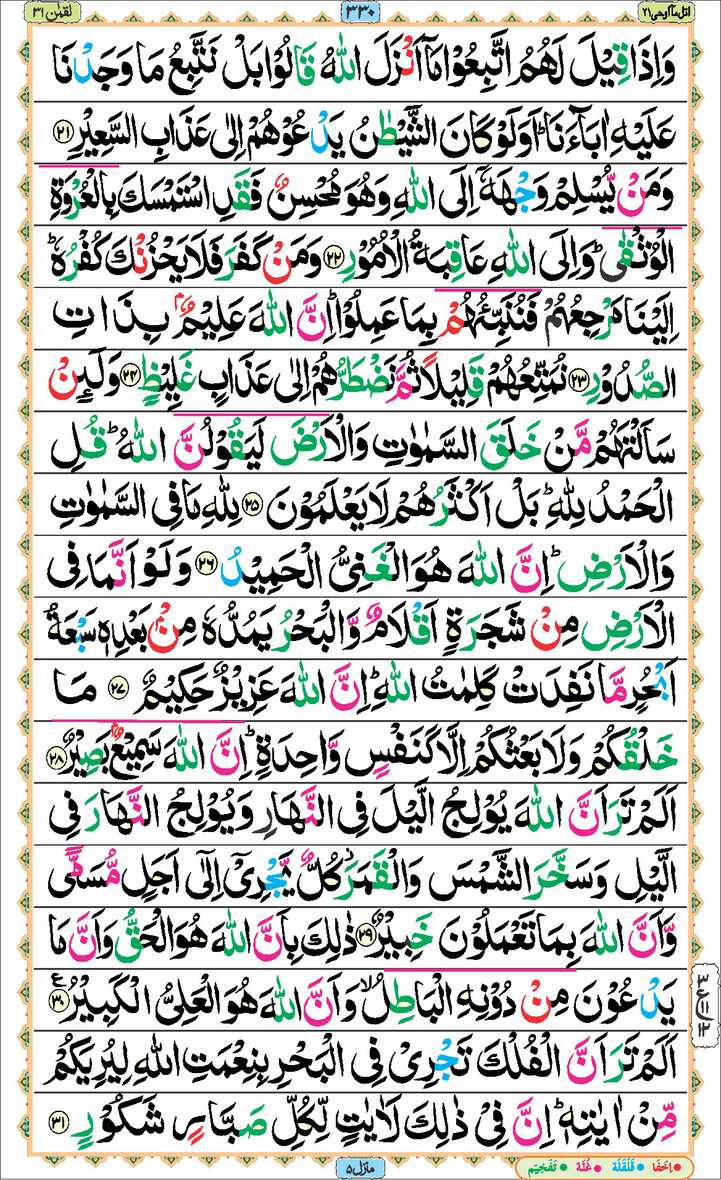 اتل ماۤ اوحی ۲۱ ۳۳۰ لقمٰن ۳۱
وَاِذَا قِیْلَ لَهُمُ اتَّبِعُوْا مَاۤ اَنْزَلَ اللّٰهُ قَالُوْا بَلْ نَتَّبِعُ مَا وَجَدْنَا
عَلَیْهِ اٰبَآءَنَا ؕ اَوَلَوْ كَانَ الشَّیْطٰنُ یَدْعُوْهُمْ اِلٰی عَذَابِ السَّعِیْرِ ﴿۲۱﴾
وَمَنْ یُّسْلِمْ وَجْهَهٗۤ اِلَی اللّٰهِ وَهُوَ مُحْسِنٌ فَقَدِ اسْتَمْسَكَ بِالْعُرْوَةِ
الْوُثْقٰی ؕ وَاِلَی اللّٰهِ عَاقِبَةُ الْاُمُوْرِ ﴿۲۲﴾ وَمَنْ كَفَرَ فَلَا یَحْزُنْكَ كُفْرُهٗ ؕ
اِلَیْنَا مَرْجِعُهُمْ فَنُنَبِّئُهُمْ بِمَا عَمِلُوْا ؕ اِنَّ اللّٰهَ عَلِیْمٌۢ بِذَاتِ
الصُّدُوْرِ ﴿۲۳﴾ نُمَتِّعُهُمْ قَلِیْلًا ثُمَّ نَضْطَرُّهُمْ اِلٰی عَذَابٍ غَلِیْظٍ ﴿۲۴﴾ وَلَىِٕنْ
سَاَلْتَهُمْ مَّنْ خَلَقَ السَّمٰوٰتِ وَالْاَرْضَ لَیَقُوْلُنَّ اللّٰهُ ؕ قُلِ
الْحَمْدُ لِلّٰهِ ؕ بَلْ اَكْثَرُهُمْ لَا یَعْلَمُوْنَ ﴿۲۵﴾ لِلّٰهِ مَا فِی السَّمٰوٰتِ
وَالْاَرْضِ ؕ اِنَّ اللّٰهَ هُوَ الْغَنِیُّ الْحَمِیْدُ ﴿۲۶﴾ وَلَوْ اَنَّمَا فِی
الْاَرْضِ مِنْ شَجَرَةٍ اَقْلَامٌ وَّالْبَحْرُ یَمُدُّهٗ مِنْۢ بَعْدِهٖ سَبْعَةُ
اَبْحُرٍ مَّا نَفِدَتْ كَلِمٰتُ اللّٰهِ ؕ اِنَّ اللّٰهَ عَزِیْزٌ حَكِیْمٌ ﴿۲۷﴾ مَا
خَلْقُكُمْ وَلَا بَعْثُكُمْ اِلَّا كَنَفْسٍ وَّاحِدَةٍ ؕ اِنَّ اللّٰهَ سَمِیْعٌۢ بَصِیْرٌ ﴿۲۸﴾
اَلَمْ تَرَ اَنَّ اللّٰهَ یُوْلِجُ الَّیْلَ فِی النَّهَارِ وَیُوْلِجُ النَّهَارَ فِی
الَّیْلِ وَسَخَّرَ الشَّمْسَ وَالْقَمَرَ ؗ كُلٌّ یَّجْرِیْۤ اِلٰۤی اَجَلٍ مُّسَمًّی
وَّاَنَّ اللّٰهَ بِمَا تَعْمَلُوْنَ خَبِیْرٌ ﴿۲۹﴾ ذٰلِكَ بِاَنَّ اللّٰهَ هُوَ الْحَقُّ وَاَنَّ مَا
یَدْعُوْنَ مِنْ دُوْنِهِ الْبَاطِلُ ۙ وَاَنَّ اللّٰهَ هُوَ الْعَلِیُّ الْكَبِیْرُ ﴿۳۰﴾ ع ۳ ۱۱ ۱۲
اَلَمْ تَرَ اَنَّ الْفُلْكَ تَجْرِیْ فِی الْبَحْرِ بِنِعْمَتِ اللّٰهِ لِیُرِیَكُمْ
مِّنْ اٰیٰتِهٖ ؕ اِنَّ فِیْ ذٰلِكَ لَاٰیٰتٍ لِّكُلِّ صَبَّارٍ شَكُوْرٍ ﴿۳۱﴾
منزل ۵ اِخفَا قَلقَلَة غُنَّة تَفخِیم